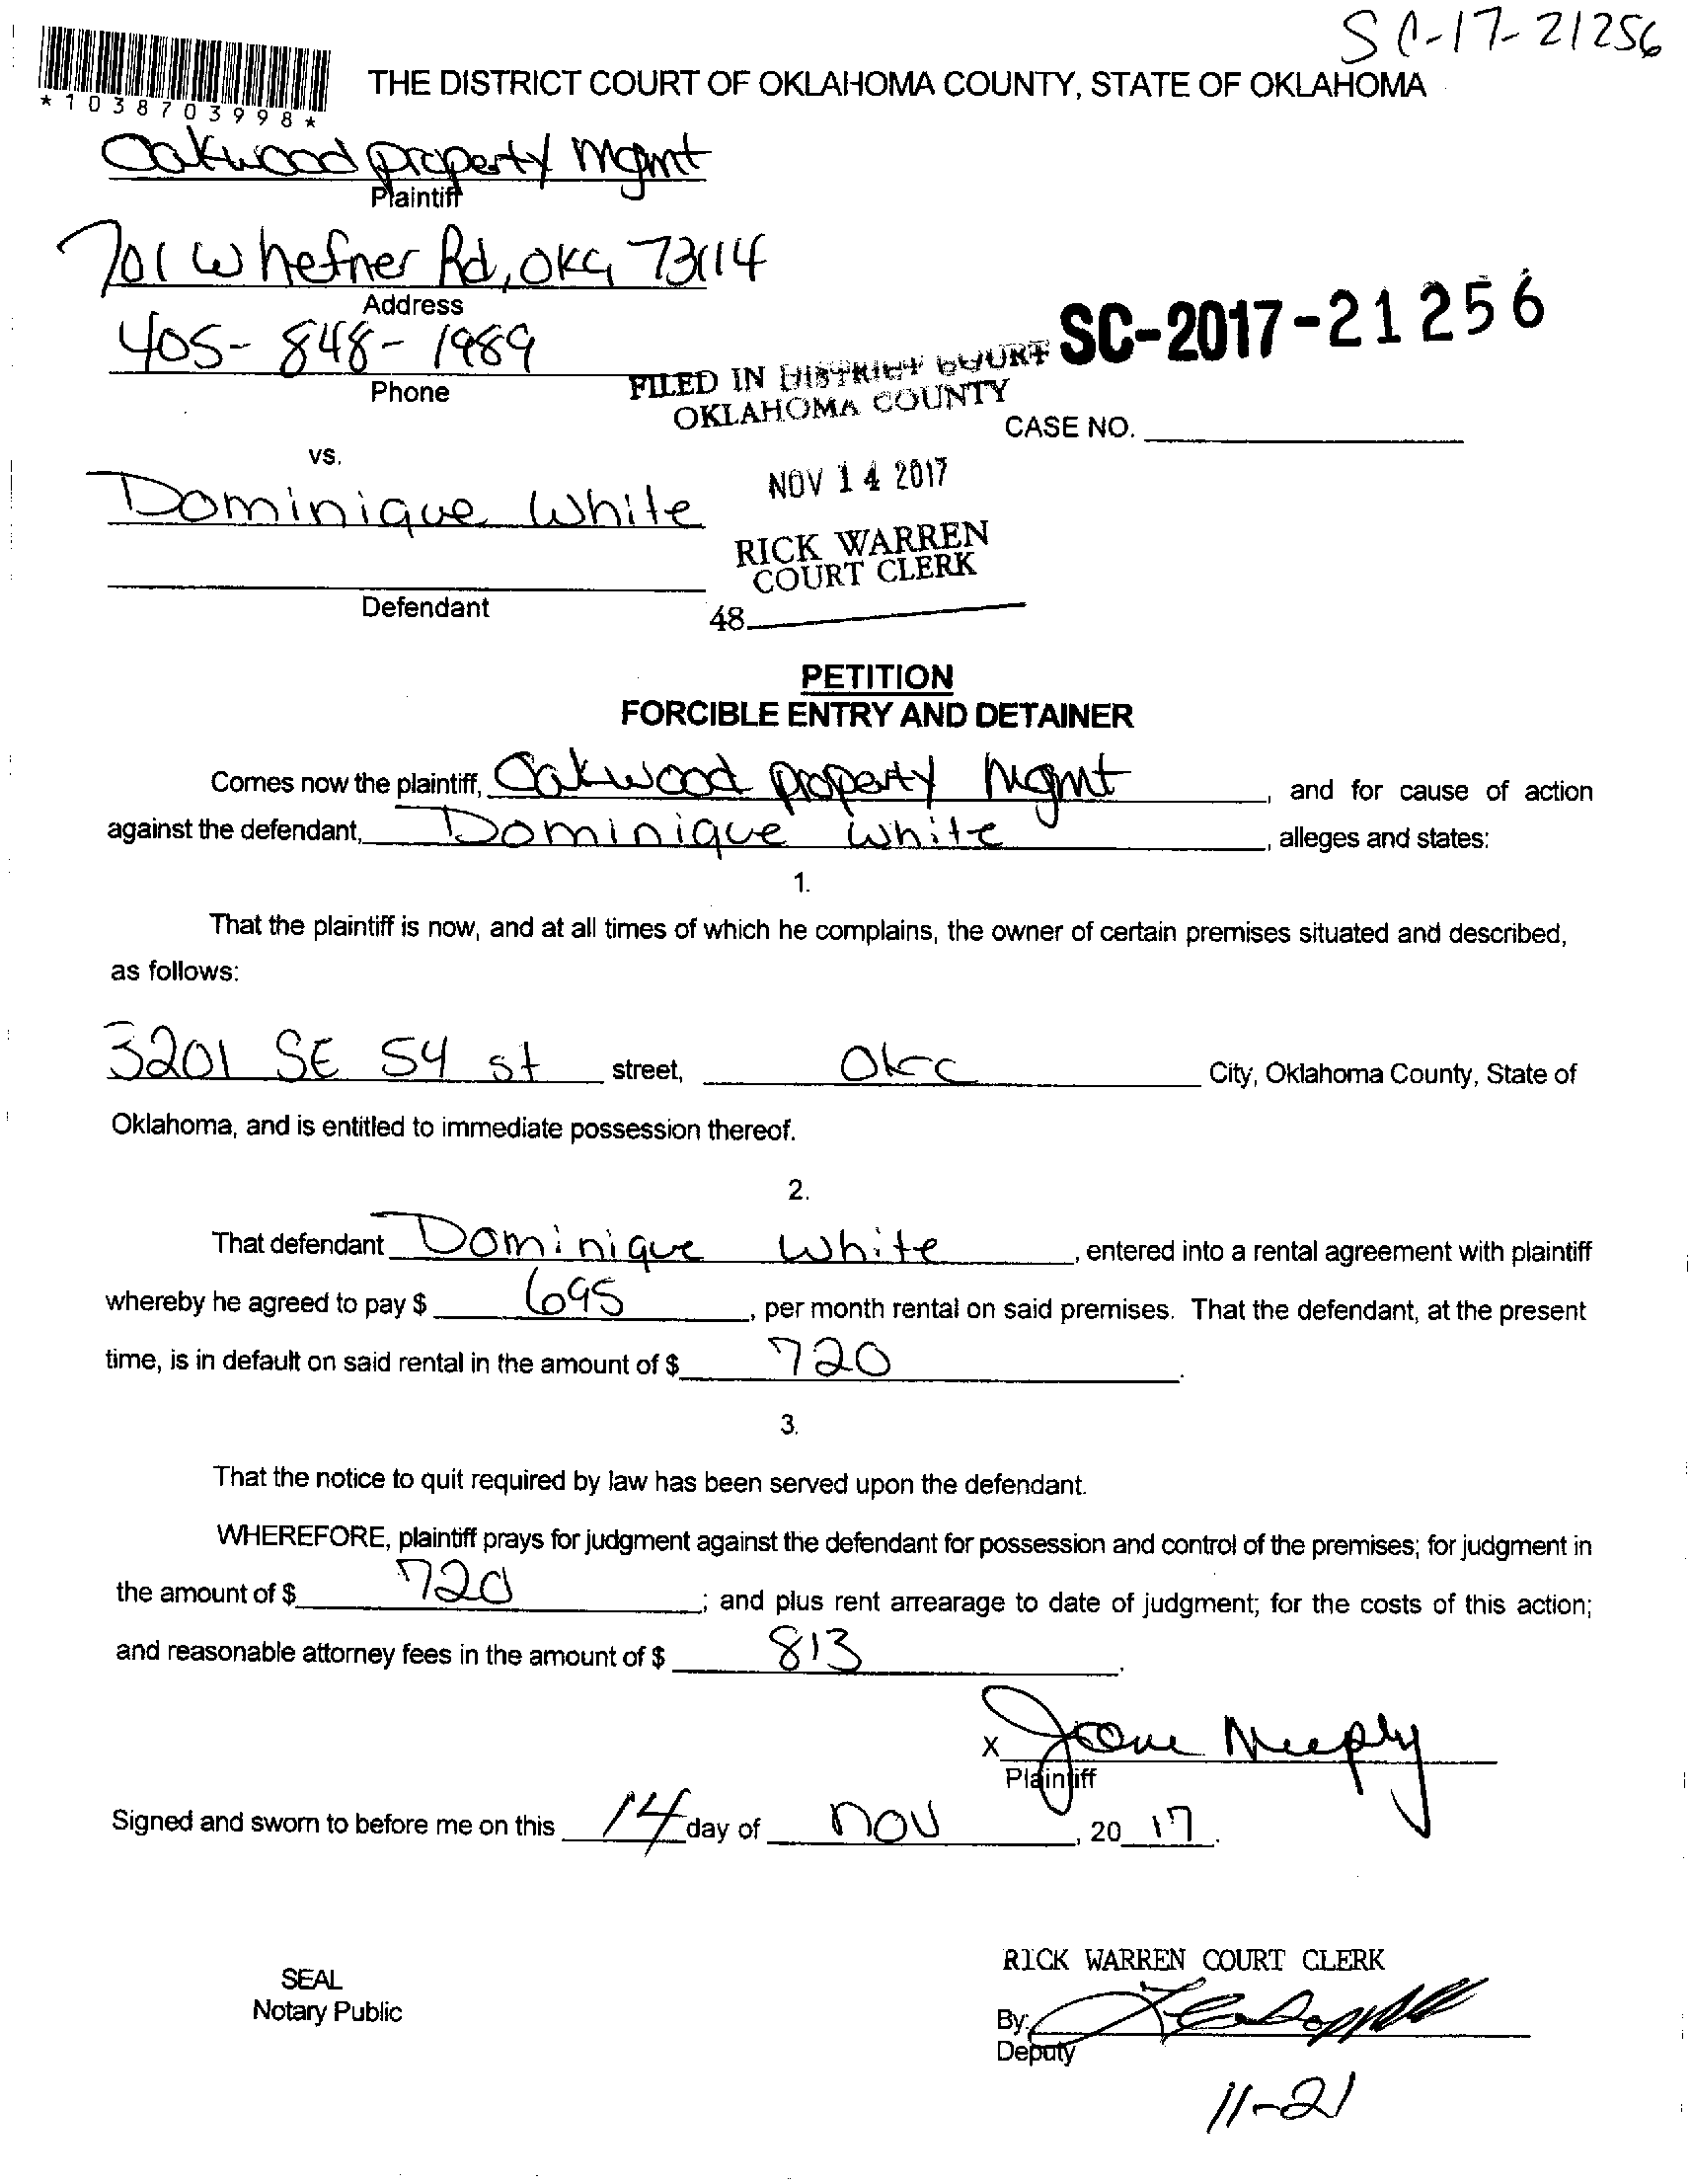 SC-17-21256
*1038703998*
THE DISTRICT COURT OF OKLAHOMA COUNTY, STATE OF OKLAHOMA
Oakwood property Mgmt
Plaintiff
701 W hefner Rd, OKC, 73114
Address
405-848-1989
Phone
SC-2017-21256
FILED IN DISTRICT COURT
OKLAHOMA COUNTY
CASE NO.
vs.
NOV 14 2017
Dominique White
RICK WARREN
COURT CLERK
Defendant
48
PETITION
FORCIBLE ENTRY AND DETAINER
Comes now the plaintiff, Oakwood property Mgmt, and for cause of action
against the defendant, Dominique White, alleges and states:
1.
That the plaintiff is now, and at all times of which he complains, the owner of certain premises situated and described,
as follows:
3201 SE 54 st street, OKC City, Oklahoma County, State of
Oklahoma, and is entitled to immediate possession thereof.
2.
That defendant Dominique White, entered into a rental agreement with plaintiff
whereby he agreed to pay $ 695, per month rental on said premises. That the defendant, at the present
time, is in default on said rental in the amount of $ 720.
3.
That the notice to quit required by law has been served upon the defendant.
WHEREFORE, plaintiff prays for judgment against the defendant for possession and control of the premises; for judgment in
the amount of $ 720; and plus rent arrearage to date of judgment; for the costs of this action;
and reasonable attorney fees in the amount of $ 813.
X
Plaintiff
Signed and sworn to before me on this 14 day of nov, 20 17.
RICK WARREN COURT CLERK
SEAL
Notary Public
By:
Deputy
11-21